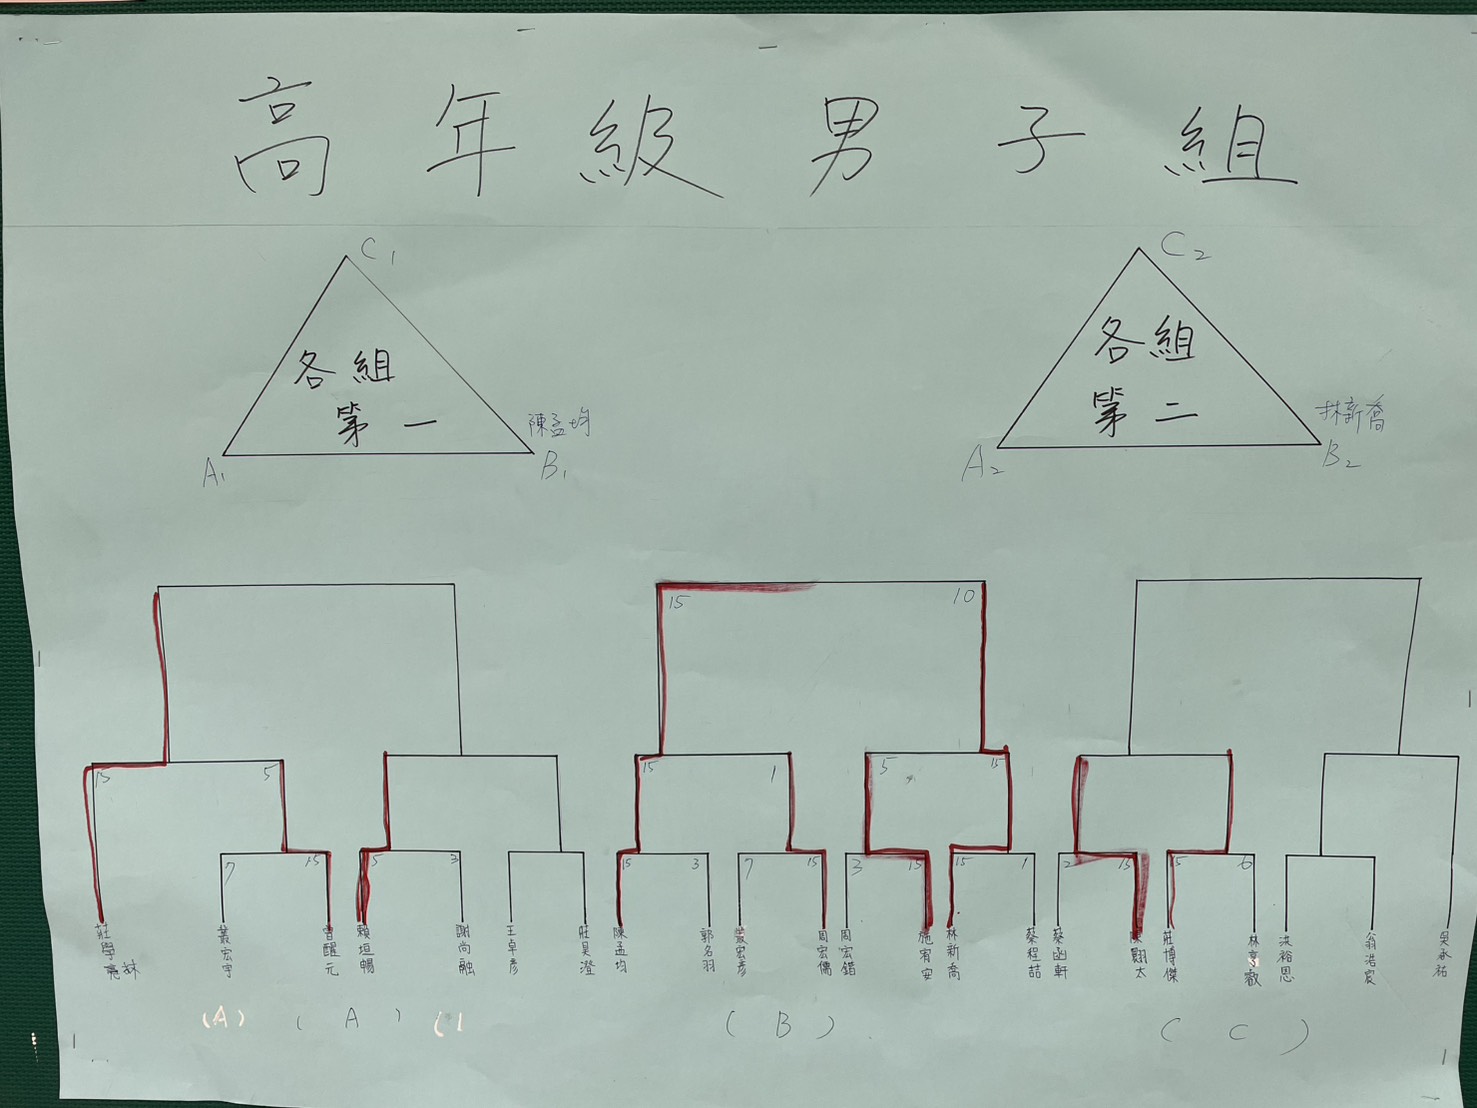 高年級男子組
C1
C2
各組
第一
各組
第二
陳孟均
林新喬
A1
B1
A2
B2
15
10
15
5
15
1
5
15
7
15
5
3
15
3
7
15
3
15
15
1
2
15
15
6
莊學亮
叢宏宇
曾醒元
賴垣暢
謝尚融
王卓彥
莊昊澄
陳孟均
郭名羽
叢宏彥
周宏儒
周宏錯
施宥安
林新喬
蔡程喆
蔡函軒
陳颢太
莊博傑
洪裕恩
翁浩宸
吳承祐
(A)
(A)
(B)
(C)